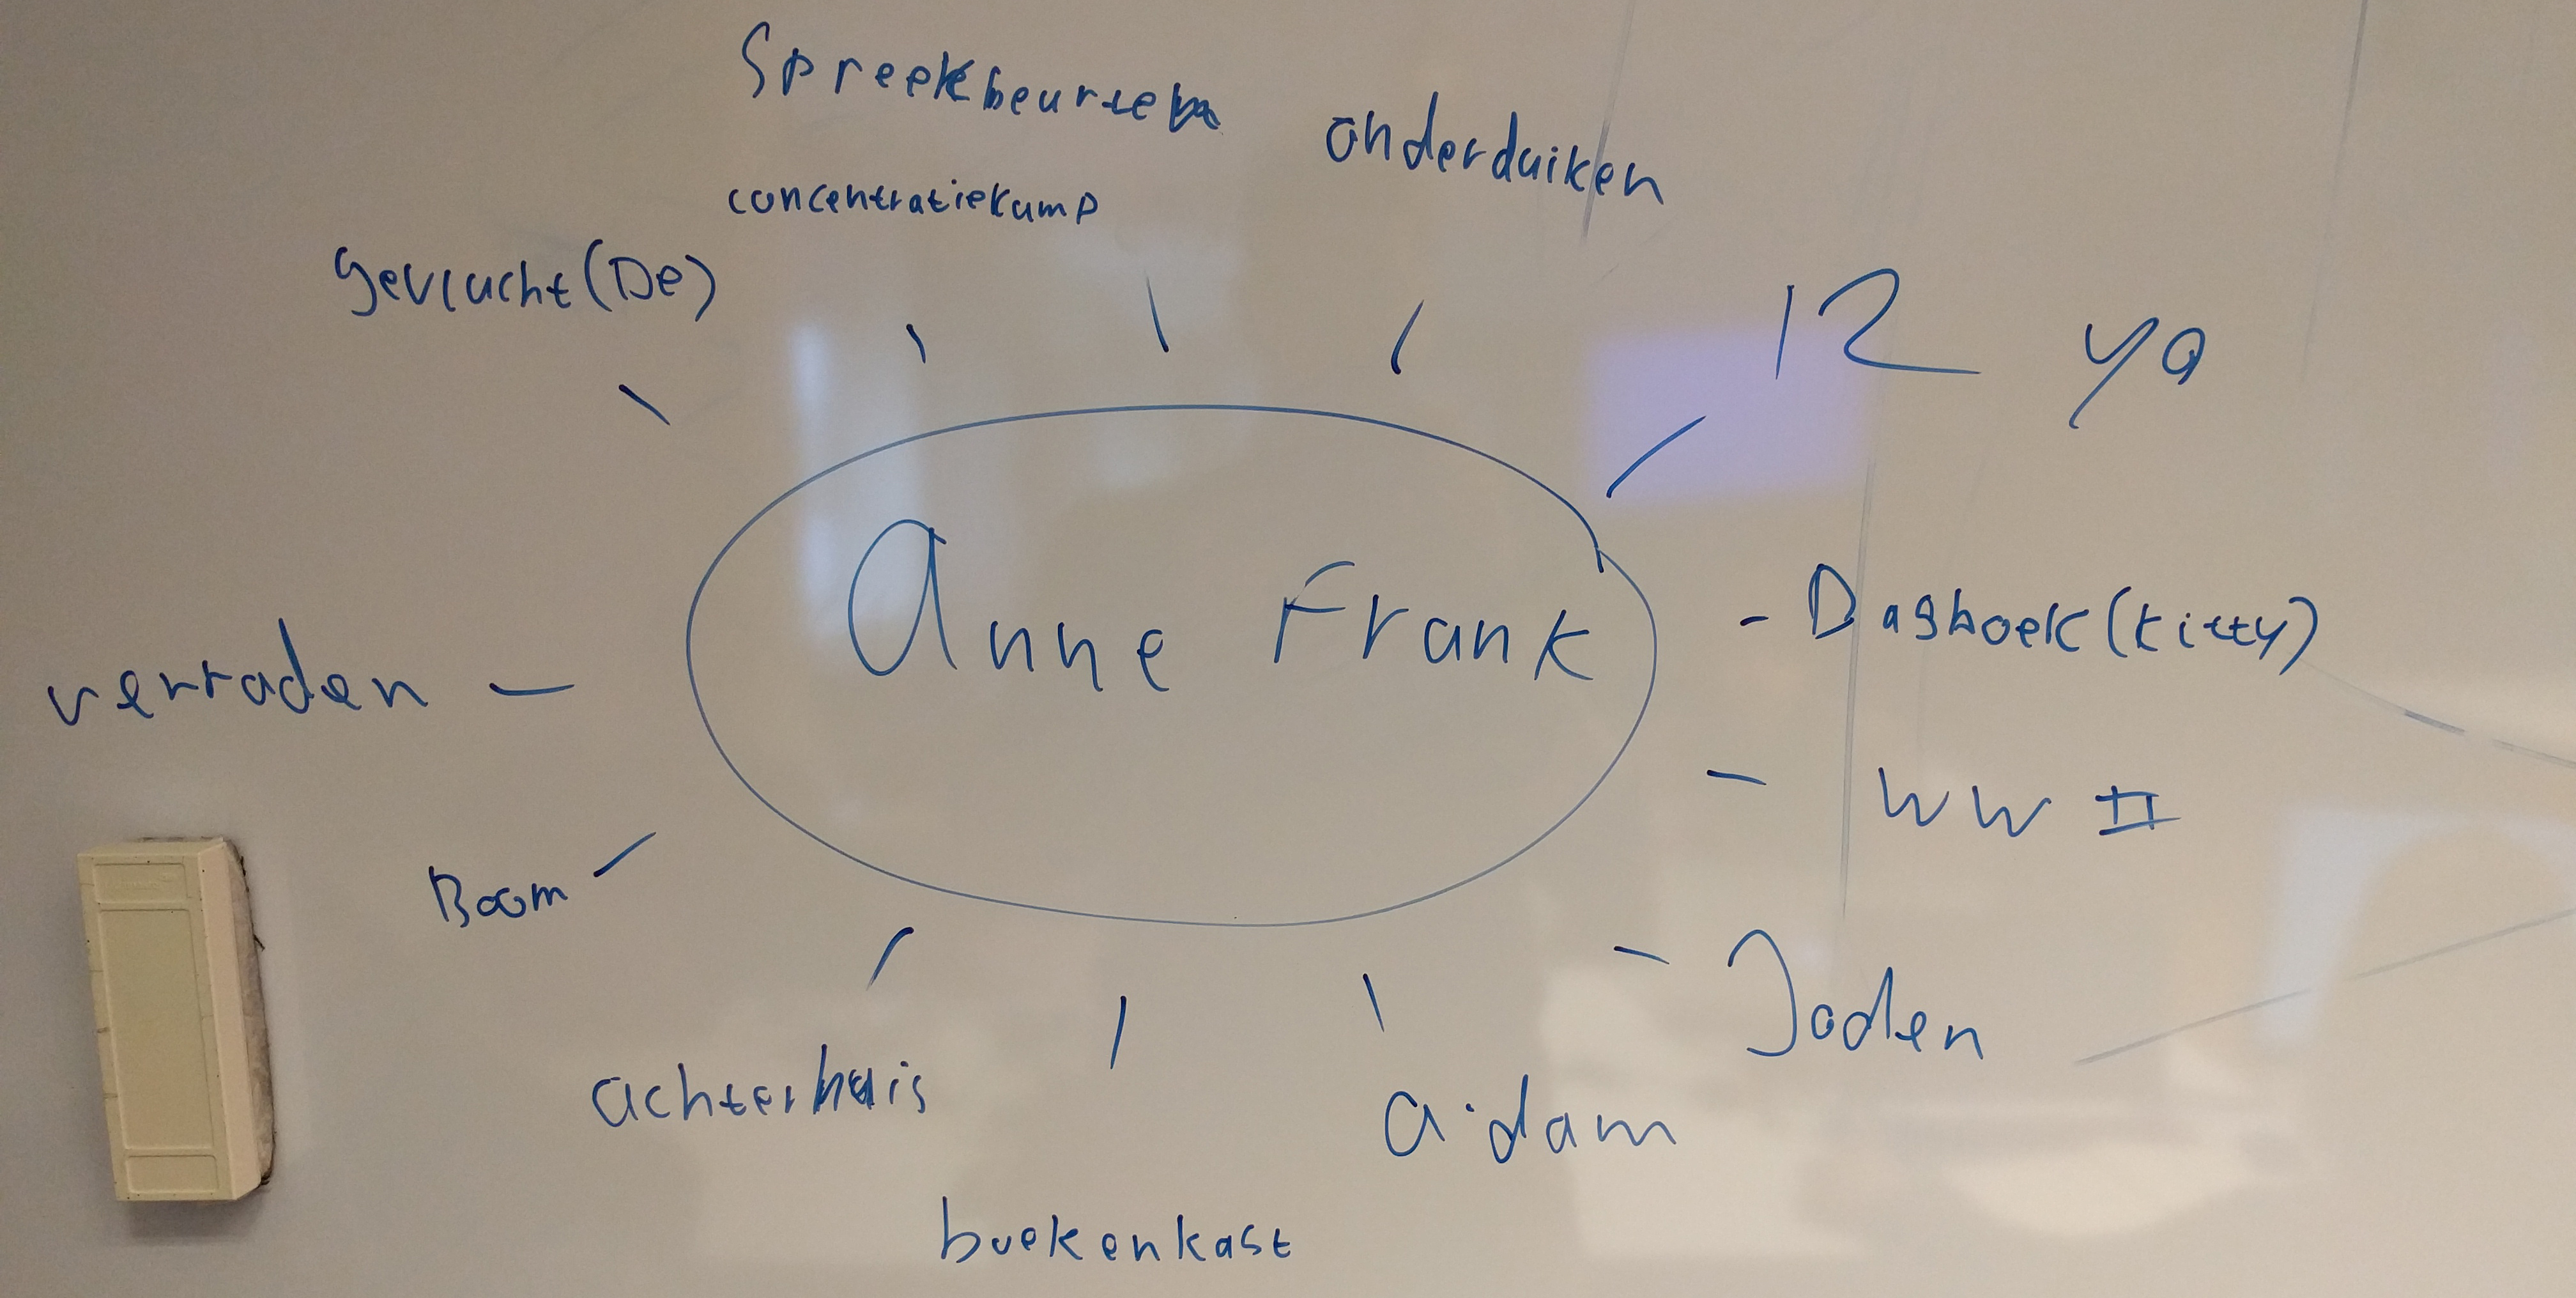 Spreekbeurten
onderduiken
concentratiekamp
gevlucht (De)
12 ya
Anne Frank
Dagboek (kitty)
verraden
WW II
Boom
Joden
achterhuis
a'dam
boekenkast